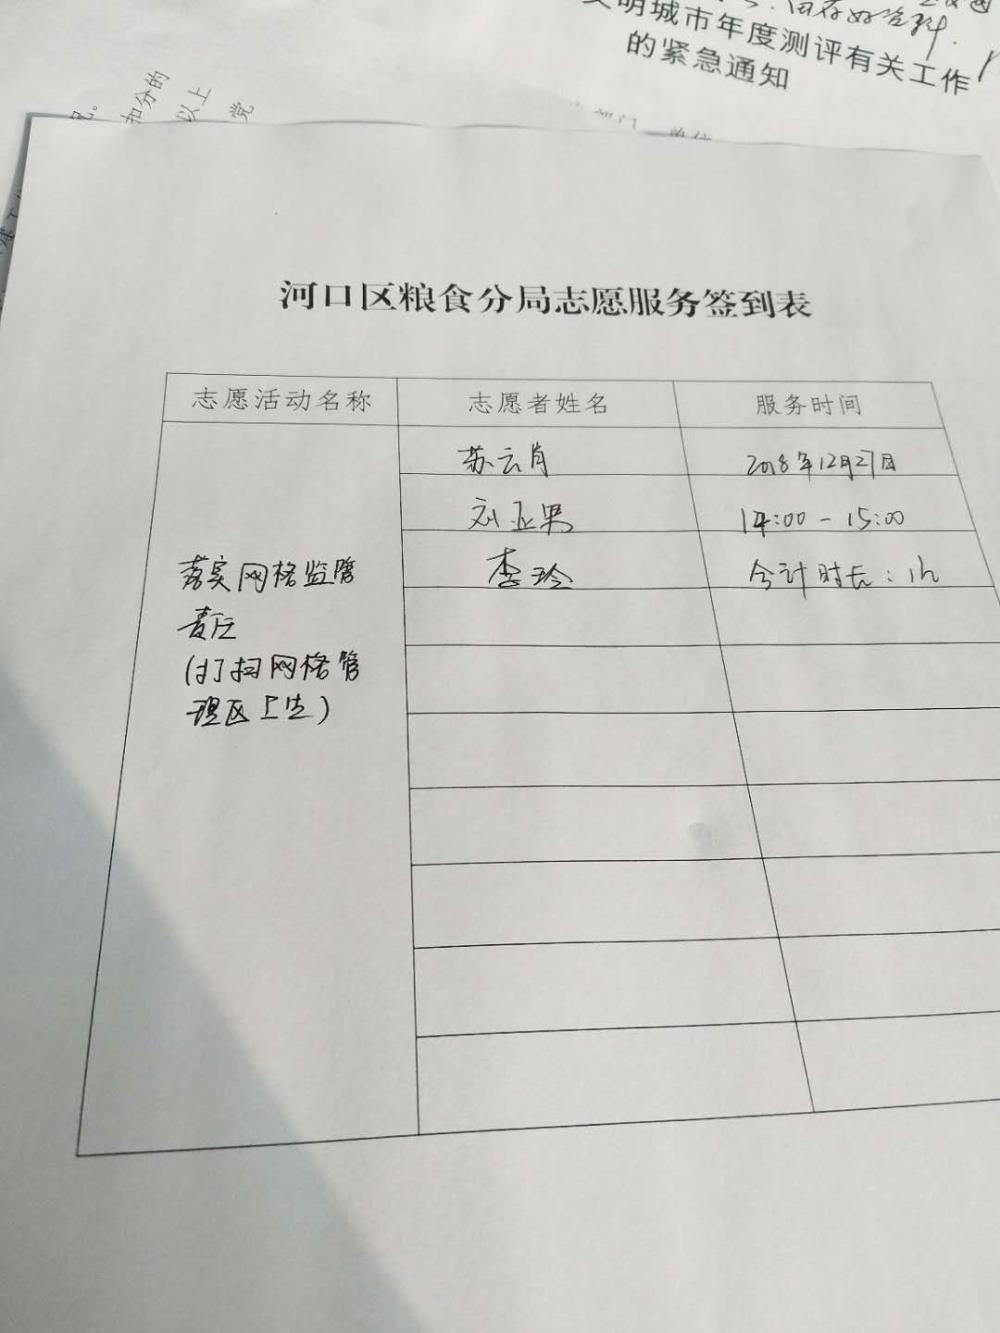 文明城市年度测评有关工作
的紧急通知
扣分的
以上
党
河口区粮食分局志愿服务签到表
志愿活动名称 志愿者姓名 服务时间
苏云肖 2018年12月27日
刘亚男 14:00-15:00
李玲 合计时长:1h
落实网格监管
责任
(打扫网格管
理区卫生)